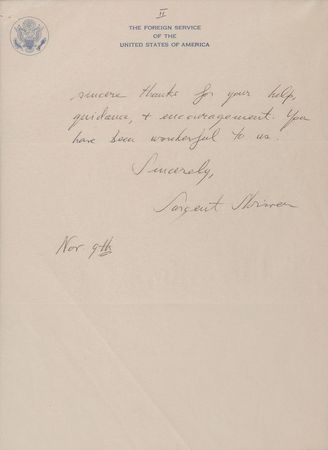 II
THE FOREIGN SERVICE
OF THE
UNITED STATES OF AMERICA
sincere thanks for your help,
guidance, + encouragement. You
have been wonderful to us.
Sincerely,
Sargent Shriver
Nov 9th